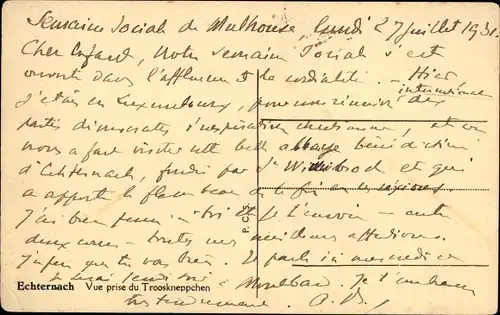 Semaine Sociale de Mulhouse, lundi 27 juillet 1931.
Cher Enfant, Notre Semaine Sociale s'est
ouverte dans l'affluence et la cordialité. — Hier
j'étais en Luxembourg, pour une réunion des
internationale
partis démocrates d'inspiration chrétienne, et on
nous a fait visiter cette belle abbaye bénédictine
d'Echternach, fondée par St Willibrord et qui
a apporté le flambeau de la foi en ces régions.
J'ai bien pensé à toi et je t'envoie
deux toutes mes meilleures affections.
J'espère que tu vas bien. Je pars ici mercredi
Je serai jeudi soir à Montbard. Je t'embrasse
Echternach Vue prise du Trooskneppchen
tendrement.
P. C.